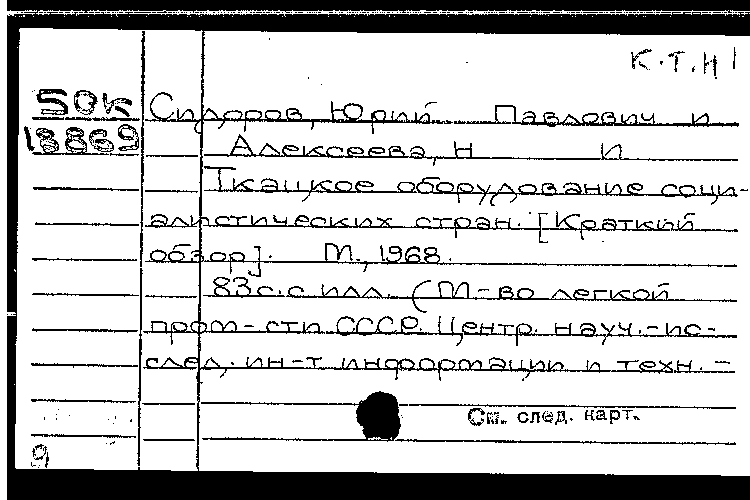 К.Т.Н
50К Сидоров, Юрий Павлович и
18869 Алексеева, Н И
Ткацкое оборудование соци-
алистических стран. [Краткий
обзор]. М., 1968.
83с.с илл. (М-во легкой
пром-сти СССР. Центр. науч.-ис-
след. ин-т информации и техн.-
См. след. карт.
9